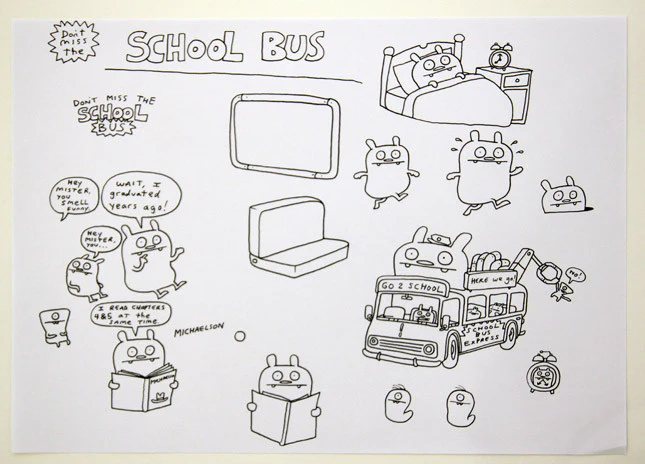 Don't
miss
the
SCHOOL BUS
DON'T MISS THE
SCHOOL
BUS
HEY
MISTER,
YOU
SMELL
FUNNY.
WAIT, I
graduated
years ago!
HEY
MISTER,
YOU...
I READ CHAPTERS
4&5 AT the
SAME TIME.
MICHAELSON
MICHAELSON
GO 2 SCHOOL
HERE WE go!
NO!
SCHOOL
BUS
EXPRESS